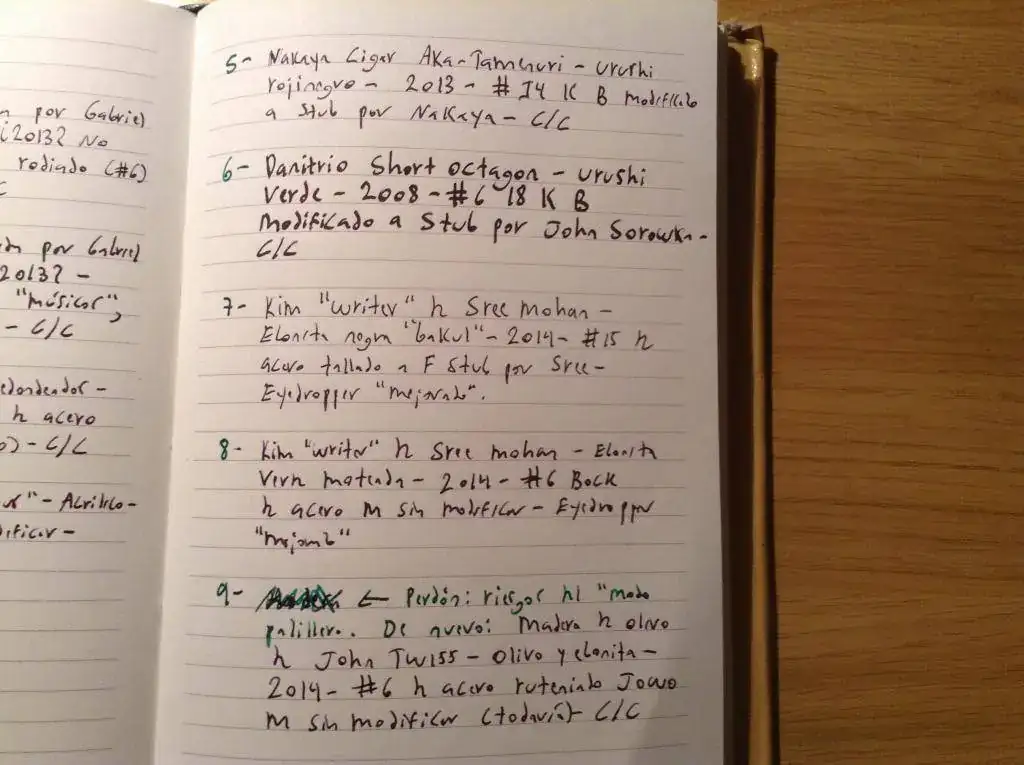 n por Gabriel
¿2013? No
rodiado (#6)
C
da por Gabriel
2013? -
"músicos",
- C/C
edondeador -
h acero
o) - C/C
" - Acrílico -
dificar -
5- Nakaya Cigar Aka-Tamenuri - urushi
rojinegro - 2013 - # 14 K B modificado
a Stub por Nakaya - C/C
6- Danitrio Short octagon - urushi
Verde - 2008 - #6 18 K B
modificado a Stub por John Sorowka -
C/C
7- Kim "writer" h Sree mohan -
Ebonita negra "bakul" - 2014 - #15 h
acero tallado a F Stub por Sree -
Eyedropper "mejorado".
8- Kim "writer" h Sree mohan - Ebonita
Verde mateada - 2014 - #6 Bock
h acero M sin modificar - Eyedropper
"mejorado"
9- ← Perdón: riesgos hl "modo
palillero. De nuevo: Madera h olivo
h John Twiss - Olivo y ebonita -
2014 - #6 h acero ruteniado Jowo
M sin modificar (todavía) - C/C